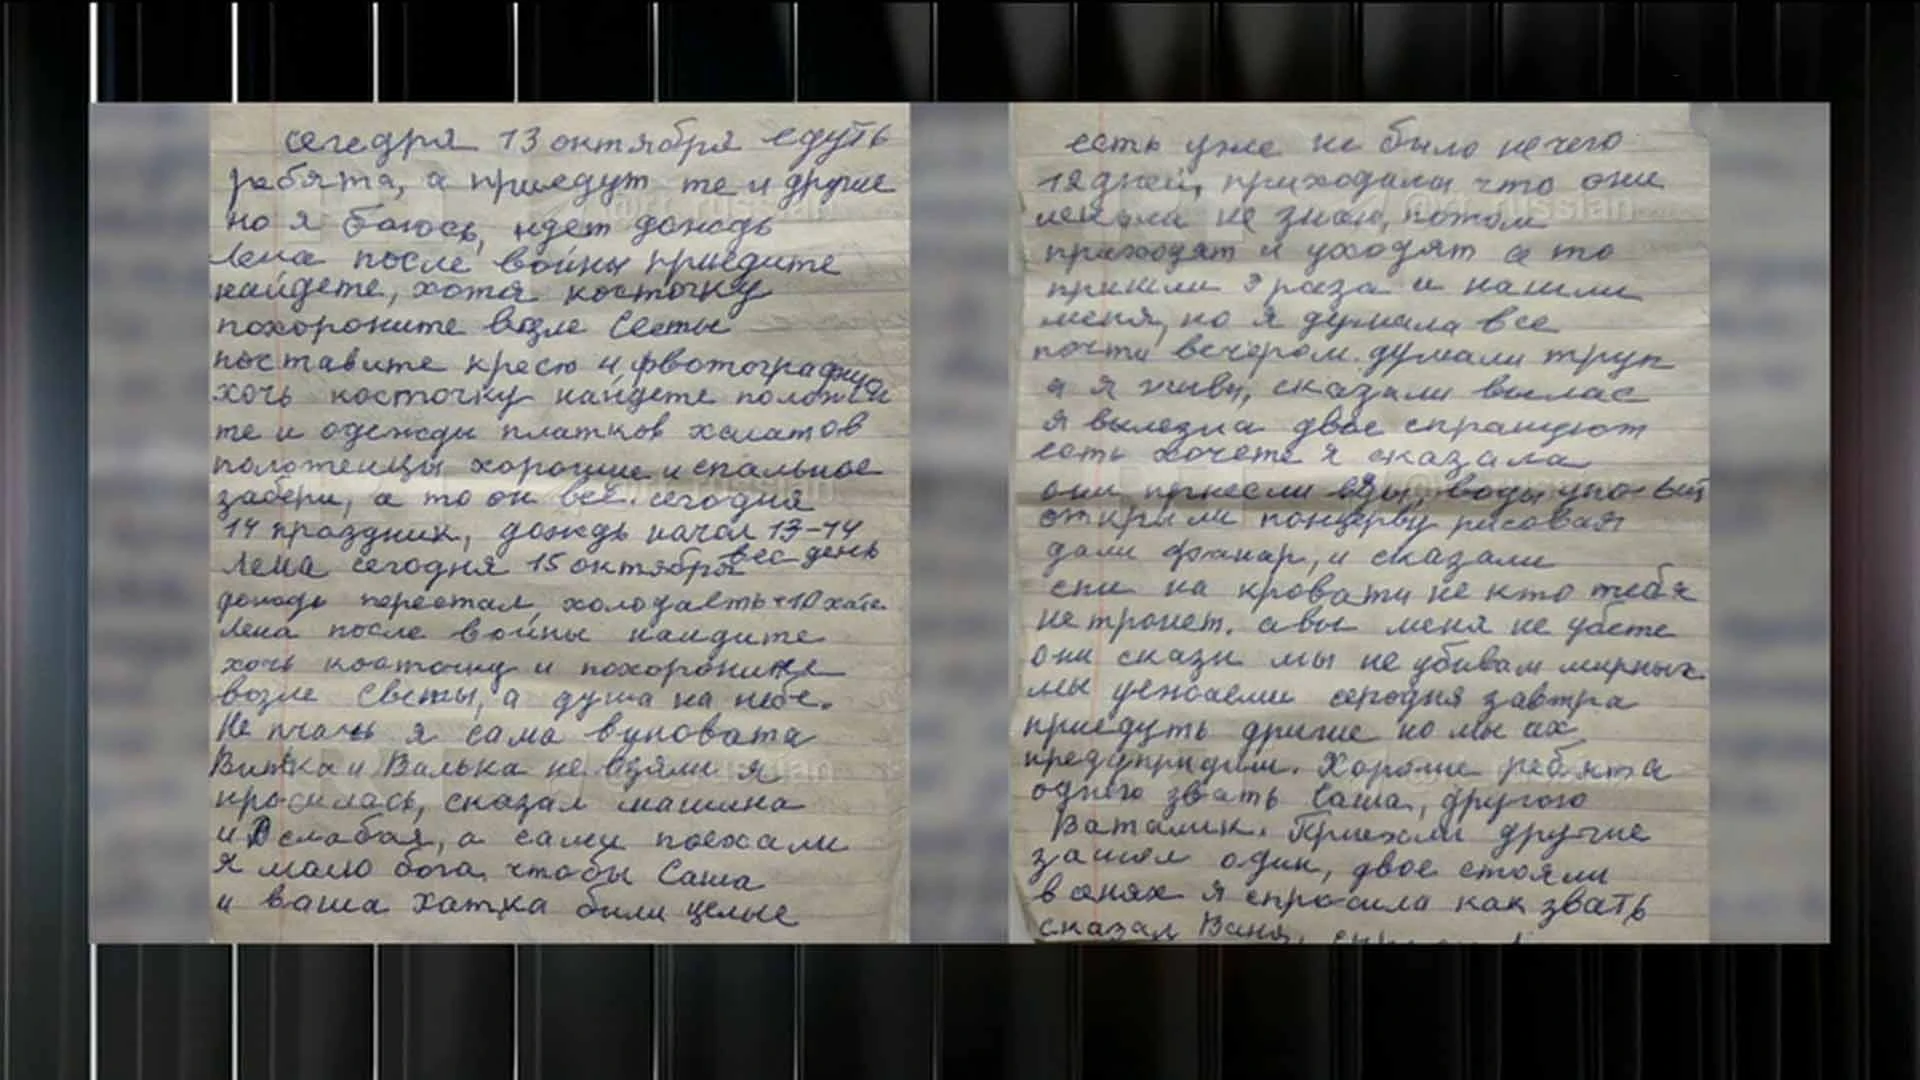 сегодня 13 октября едуть
ребята, а приедут те и другие
но я боюсь, идет дождь
Лена после войны приедите
найдете, хотя косточку
похороните возле Светы
поставите крест и фвотографию
хочь косточку найдете положи
те и одежды платков халатов
полотенцы хорошие и спальное
забери, а то он всё. сегодня
14 праздник, дождь начал 13-14
Лена сегодня 15 октября вес день
дождь перестал, холодаеть +10 хате
Лена после войны найдите
хочь косточку и похороните
возле Светы, а душа на небе.
Не плачь я сама вуновата
Витка и Валька не взяли я
просилась, сказал машина
и слабая, а сами поехали
я малю бога чтобы Саша
и ваша хатка били целые
есть уже не было нечего
12 дней, приходили что они
не знаю, потом
приходят и уходят а то
пришли 3 раза и нашли
меня, но я думала все
почти вечером. думали труп
а я жива, сказали вылас
я вылезла двое спрашуют
есть хочете я сказала
они принесли еды, воды
открыли концерву рисовая
дали фанар, и сказали
спи на кровати не кто тебя
не тронет. а вы меня не убете
они скази мы не убивам мирных
мы уежаем сегодня завтра
приедуть другие но мы их
предупридим. Хорошие ребята
одного звать Саша, другого
Ваталик. Приехали другие
зашел один, двое стояли
в сенях я спросила как звать
сказал Ваня,